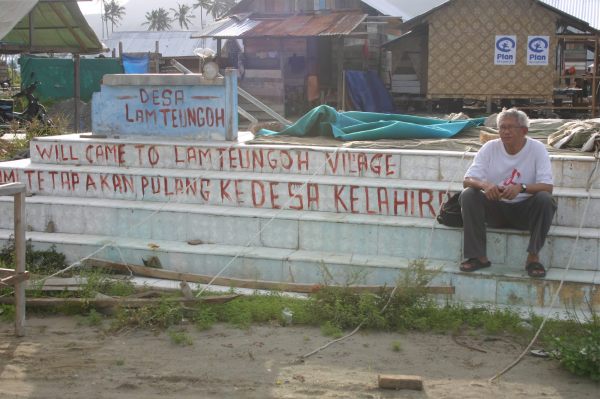 DESA
LAMTEUNGOH
WILL CAME TO LAMTEUNGOH VILAGE
MI TETAP AKAN PULANG KE DESA KELAHIR
Plan
Plan